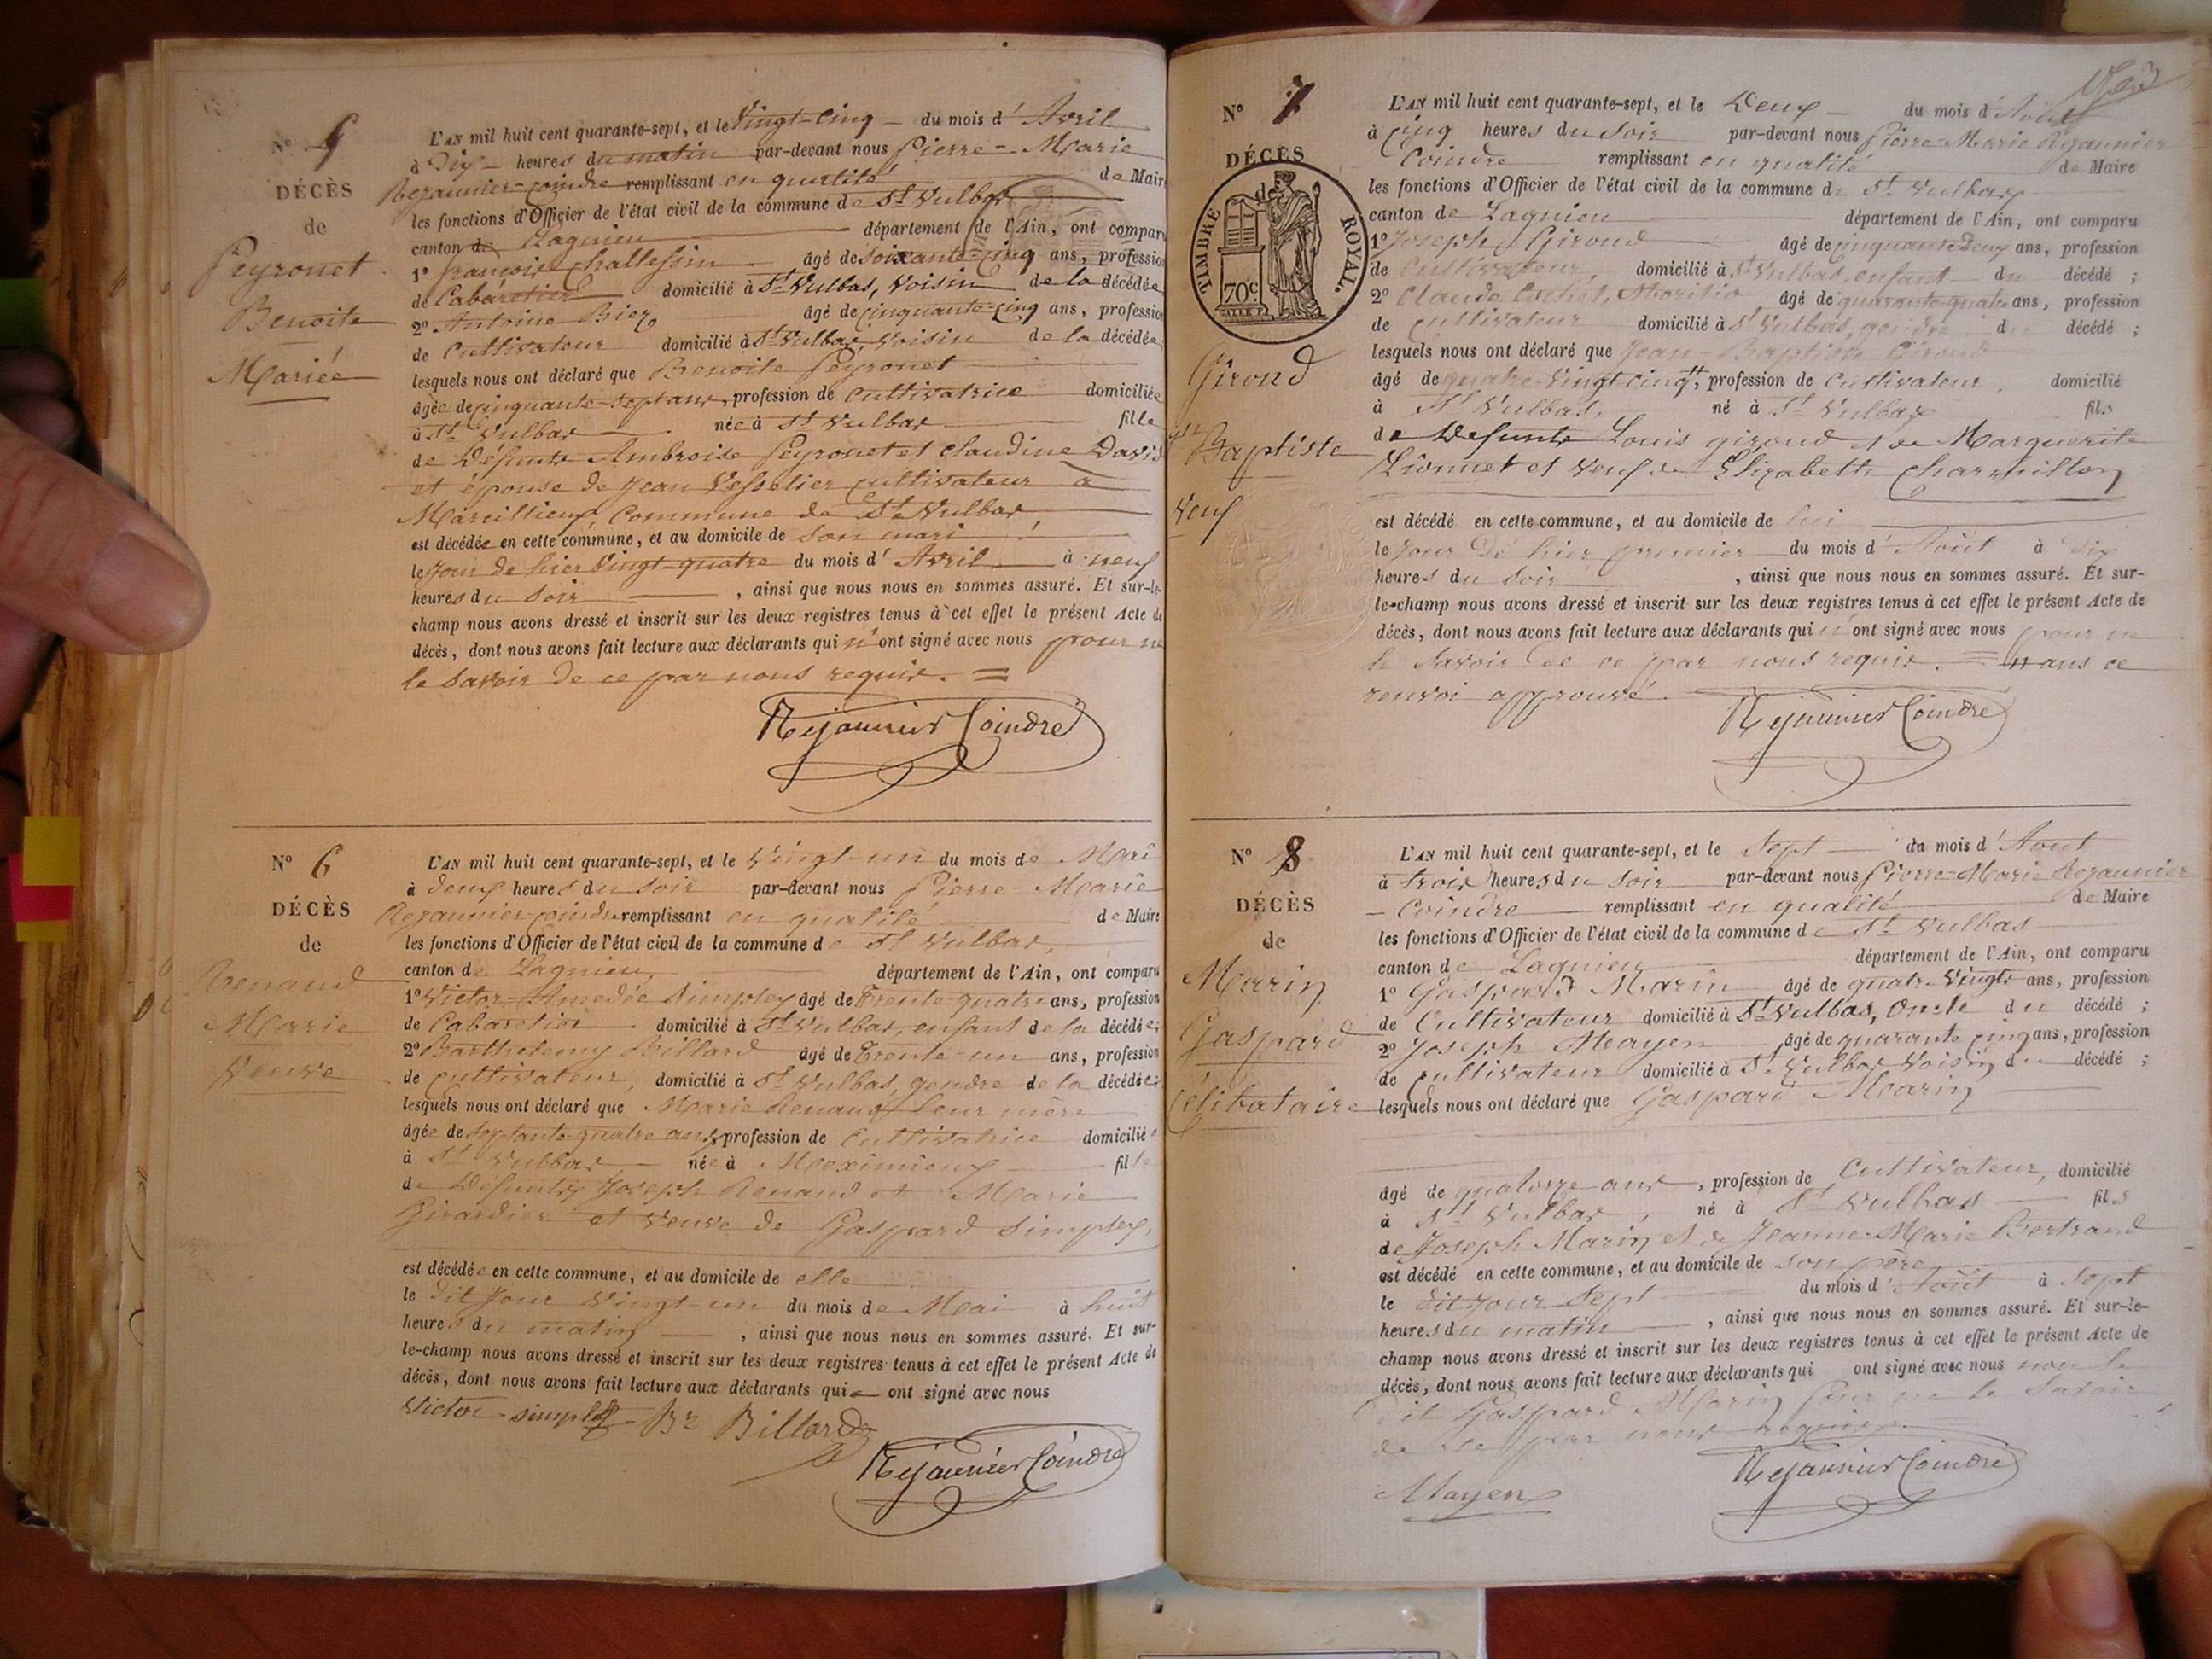 N° 5
DÉCÈS
de
Peyronet
Benoite
Mariée
L'AN mil huit cent quarante-sept, et le Vingt-cinq du mois d'Avril
à Dix heures du matin par-devant nous Pierre-Marie
Rejaunier-Coindre remplissant en qualité de Maire
les fonctions d'Officier de l'état civil de la commune de St Vulbas
canton de Lagnieu département de l'Ain, ont comparu
1° françois challessin âgé de Soixante-cinq ans, profession
de Cabaretier domicilié à St Vulbas, Voisin de la décédée
2° Antoine âgé de cinquante-cinq ans, profession
de Cultivateur domicilié à St Vulbas Voisin de la décédée
lesquels nous ont déclaré que Benoite Peyronet
âgée de cinquante-sept ans, profession de Cultivatrice domiciliée
à St Vulbas née à St Vulbas fille
de Défunts Ambroise Peyronet et Claudine David
et épouse de Jean Vesselier cultivateur à
Marcillieux, Commune de St Vulbas
est décédée en cette commune, et au domicile de son mari
le Jour de hier Vingt-quatre du mois d'Avril à neuf
heures du Soir, ainsi que nous nous en sommes assuré. Et sur-le-
champ nous avons dressé et inscrit sur les deux registres tenus à cet effet le présent Acte de
décès, dont nous avons fait lecture aux déclarants qui n'ont signé avec nous pour ne
le Savoir de ce par nous requis. =
Rejaunier Coindre
N° 6
DÉCÈS
de
Renaud
Marie
Veuve
L'AN mil huit cent quarante-sept, et le Vingt-un du mois de Mai
à deux heures du Soir par-devant nous Pierre-Marie
Rejaunier-Coindre remplissant en qualité de Maire
les fonctions d'Officier de l'état civil de la commune de St Vulbas,
canton de Lagnieu, département de l'Ain, ont comparu
1° Victor-Amedée Simplex âgé de Trente-quatre ans, profession
de Cabaretier domicilié à St Vulbas, enfant de la décédée;
2° Barthelemy Billard âgé de Trente-un ans, profession
de cultivateur, domicilié à St Vulbas, gendre de la décédée;
lesquels nous ont déclaré que Marie Renaud leur mère
âgée de Septante-quatre ans, profession de Cultivatrice domicilié
à St Vulbas née à Meximieux fille
de Défunts Joseph Renaud et Marie
Girardier et Veuve de Gaspard Simplex,
est décédée en cette commune, et au domicile de elle
le Dit Jour Vingt-un du mois de Mai à huit
heures du matin, ainsi que nous nous en sommes assuré. Et sur-
le-champ nous avons dressé et inscrit sur les deux registres tenus à cet effet le présent Acte de
décès, dont nous avons fait lecture aux déclarants qui ont signé avec nous
Victor simplex Br Billard
Rejaunier Coindre
N° 7
DÉCÈS
de
TIMBRE ROYAL.
70c
Giroud
Jn
Baptiste
Veuf
L'AN mil huit cent quarante-sept, et le Deux du mois d'Août
à Cinq heures du Soir par-devant nous Pierre-Marie Rejaunier
Coindre remplissant en qualité de Maire
les fonctions d'Officier de l'état civil de la commune de St Vulbas
canton de Lagnieu département de l'Ain, ont comparu
1° Joseph Giroud âgé de cinquante-Deux ans, profession
de Cultivateur, domicilié à St Vulbas, enfant du décédé;
2° Claude âgé de quarante-quatre ans, profession
de cultivateur domicilié à St Vulbas, gendre du décédé;
lesquels nous ont déclaré que Jean-Baptiste Giroud
âgé de quatre-Vingt-cinq, profession de Cultivateur domicilié
à St Vulbas, né à St Vulbas fils
de Defunts Louis giroud et de Marguerite
Lionnet et Veuf de Elizabeth Charmillon
est décédé en cette commune, et au domicile de lui
le Jour De hier premier du mois d'Août à Dix
heures du Soir, ainsi que nous nous en sommes assuré. Et sur-
le-champ nous avons dressé et inscrit sur les deux registres tenus à cet effet le présent Acte de
décès, dont nous avons fait lecture aux déclarants qui n'ont signé avec nous pour ne
le Savoir De ce par nous requis. = # ans ce
renvoi approuvé.
Rejaunier Coindre
N° 8
DÉCÈS
de
Marin
Gaspard
Célibataire
L'AN mil huit cent quarante-sept, et le Sept du mois d'Aout
à trois heures du Soir par-devant nous Pierre-Marie Rejaunier
- Coindre remplissant en qualité de Maire
les fonctions d'Officier de l'état civil de la commune de St Vulbas
canton de Lagnieu département de l'Ain, ont comparu
1° Gaspard Marin âgé de quatre Vingts ans, profession
de Cultivateur domicilié à St Vulbas, Oncle du décédé;
2° Joseph Mayen âgé de quarante cinq ans, profession
de cultivateur domicilié à St Vulbas Voisin du décédé;
lesquels nous ont déclaré que Gaspard Marin
âgé de quatorze ans, profession de Cultivateur, domicilié
à St Vulbas, né à St Vulbas fils
de Joseph Marin et de Jeanne-Marie Bertrand
est décédé en cette commune, et au domicile de son père
le dit Jour Sept du mois d'Août à Sept
heures du matin, ainsi que nous nous en sommes assuré. Et sur-le-
champ nous avons dressé et inscrit sur les deux registres tenus à cet effet le présent Acte de
décès, dont nous avons fait lecture aux déclarants qui ont signé avec nous non le
Dit Gaspard Marin pour ne le Savoir
de ce par nous requis.
Mayen
Rejaunier Coindre